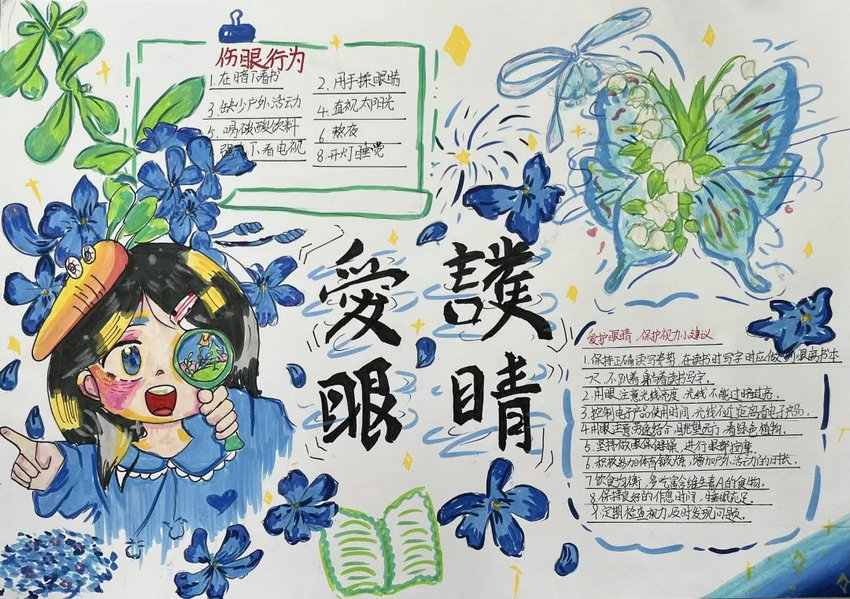 伤眼行为
1.在暗下看书 2.用手揉眼睛
3.缺少户外活动 4.直视太阳光
5.喝碳酸饮料 6.熬夜
强光下看电视 8.开灯睡觉
愛護
眼晴
爱护眼睛,保护视力小建议
1.保持正确读写姿势,在读书时写字时应做到眼离书本
一尺,不趴着躺着读书写字。
2.用眼注意光线亮度 光线不能过暗过亮。
3.控制电子产品使用时间,光线不 看电子产品。
4.用眼注意劳逸结合,眺望远方,看绿色植物。
5.坚持做眼保健操,进行眼部按摩。
6.积极参加体育锻炼,增加户外活动的时长
7.饮食均衡,多吃富含维生素A的食物。
8.保持良好的作息时间,睡眠充足。
9.定期检查视力,及时发现问题。